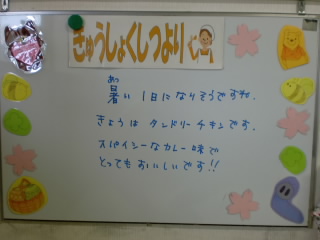 きゅうしょくしつより
あつ
暑い 1日になりそうですね。
きょうは タンドリーチキンです。
スパイシーなカレー味で
とってもおいしいです!!